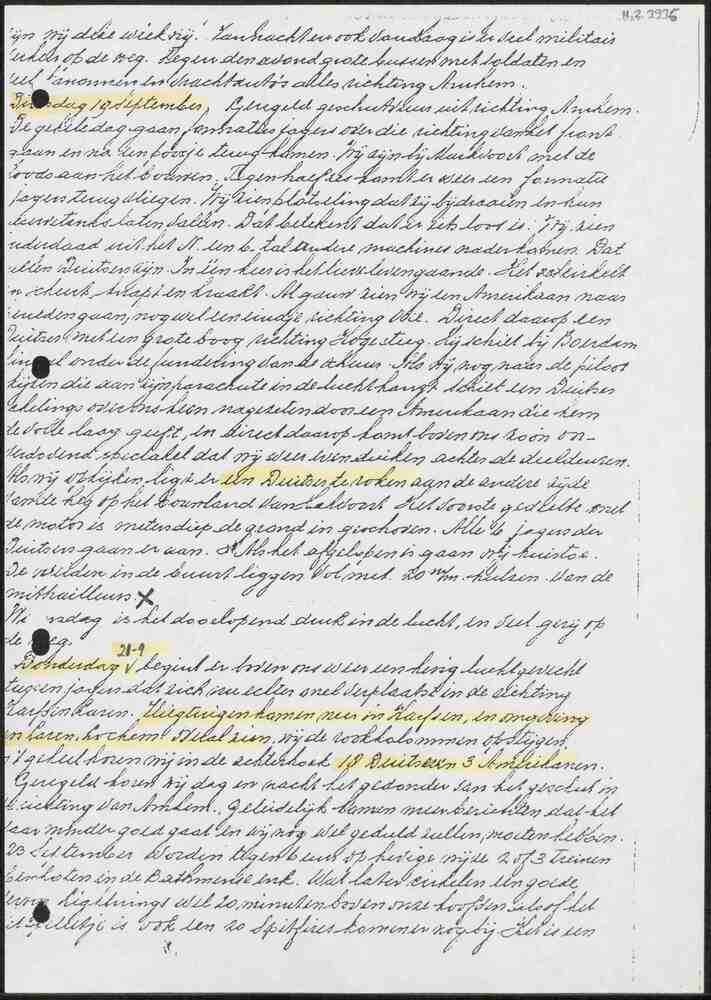 11.2.3936
zijn wij deze week vrij. Vannacht en ook vandaag is er veel militair
verkeer op de weg. Tegen den avond grote bussen met soldaten en
veel kanonnen en vrachtauto's alles richting Arnhem.
Dinsdag 19 September, Geregeld geschutvuur uit richting Arnhem.
De gehele dag gaan formaties jagers over die richting van het front
gaan en na een poosje terug komen. Wij zijn bij Markvoort met de
loods aan het bouwen. Tegen half zes komt er weer een formatie
jagers terug vliegen. Wij zien plotseling dat zij bijdraaien en hun
laten vallen. Dat betekent dat er iets loos is. Wij zien
inderdaad uit het N. een 6 tal andere machines naderkomen. Dat
zijn. In één keer is het lieve leven gaande. Het
scheurt, knapt en kraakt. Al gauw zien wij een Amerikaan naar
beneden gaan, nog wel een eindje richting Direct daarop een
Duitser met een grote boog richting Hogesteeg. Hij schiet bij Boerdam
onder de fundering van de schuur. Als wij nog naar de piloot
kijken die aan zijn parachute in de lucht hangt schiet een Duitser
rakelings over ons heen nagezeten door een Amerikaan die hem
de volle laag geeft, en direct daarop komt boven ons zoo'n oor-
verdovend spectakel dat wij weer even duiken achter de deeldeuren.
Als wij opkijken, ligt er een Duitser te roken aan de andere zijde
van de heg op het bouwland van Het voorste gedeelte met
de motor is meters diep de grond in geschoven. Alle 6 jagers der
Duitsers gaan er aan. Als het afgelopen is gaan wij huistoe.
De velden in de buurt liggen vol met 20 m/m hulzen van de
mithailleurs X
Woensdag is het doorlopend druk in de lucht, en veel gerij op
de weg.
21-9
Donderdag V begint er boven ons weer een hevig luchtgevecht
tussen jagers dat zich nu echter snel verplaatst in de richting
Harfsen Laren. Vliegtuigen komen neer in Harfsen, en omgeving
en Laren, Lochem. Overal zien wij de rookkolommen opstijgen
geheel horen wij in de achterhoek 18 Duitsers en 3 Amerikanen.
Geregeld horen wij dag en nacht het gedonder van het geschut in
richting van Arnhem. Geleidelijk komen meer berichten dat het
daar minder goed gaat en wij nog wel geduld zullen moeten hebben.
23 September worden tegen 6 uur op hevige wijze 2 of 3 treinen
beschoten in de Bathmense enk. Wat later cirkelen een goede
Lightnings wel 20 minuten boven onze hoofden alsof het
spelletje is ook een 20 Spitfires komen er nog bij Het is een